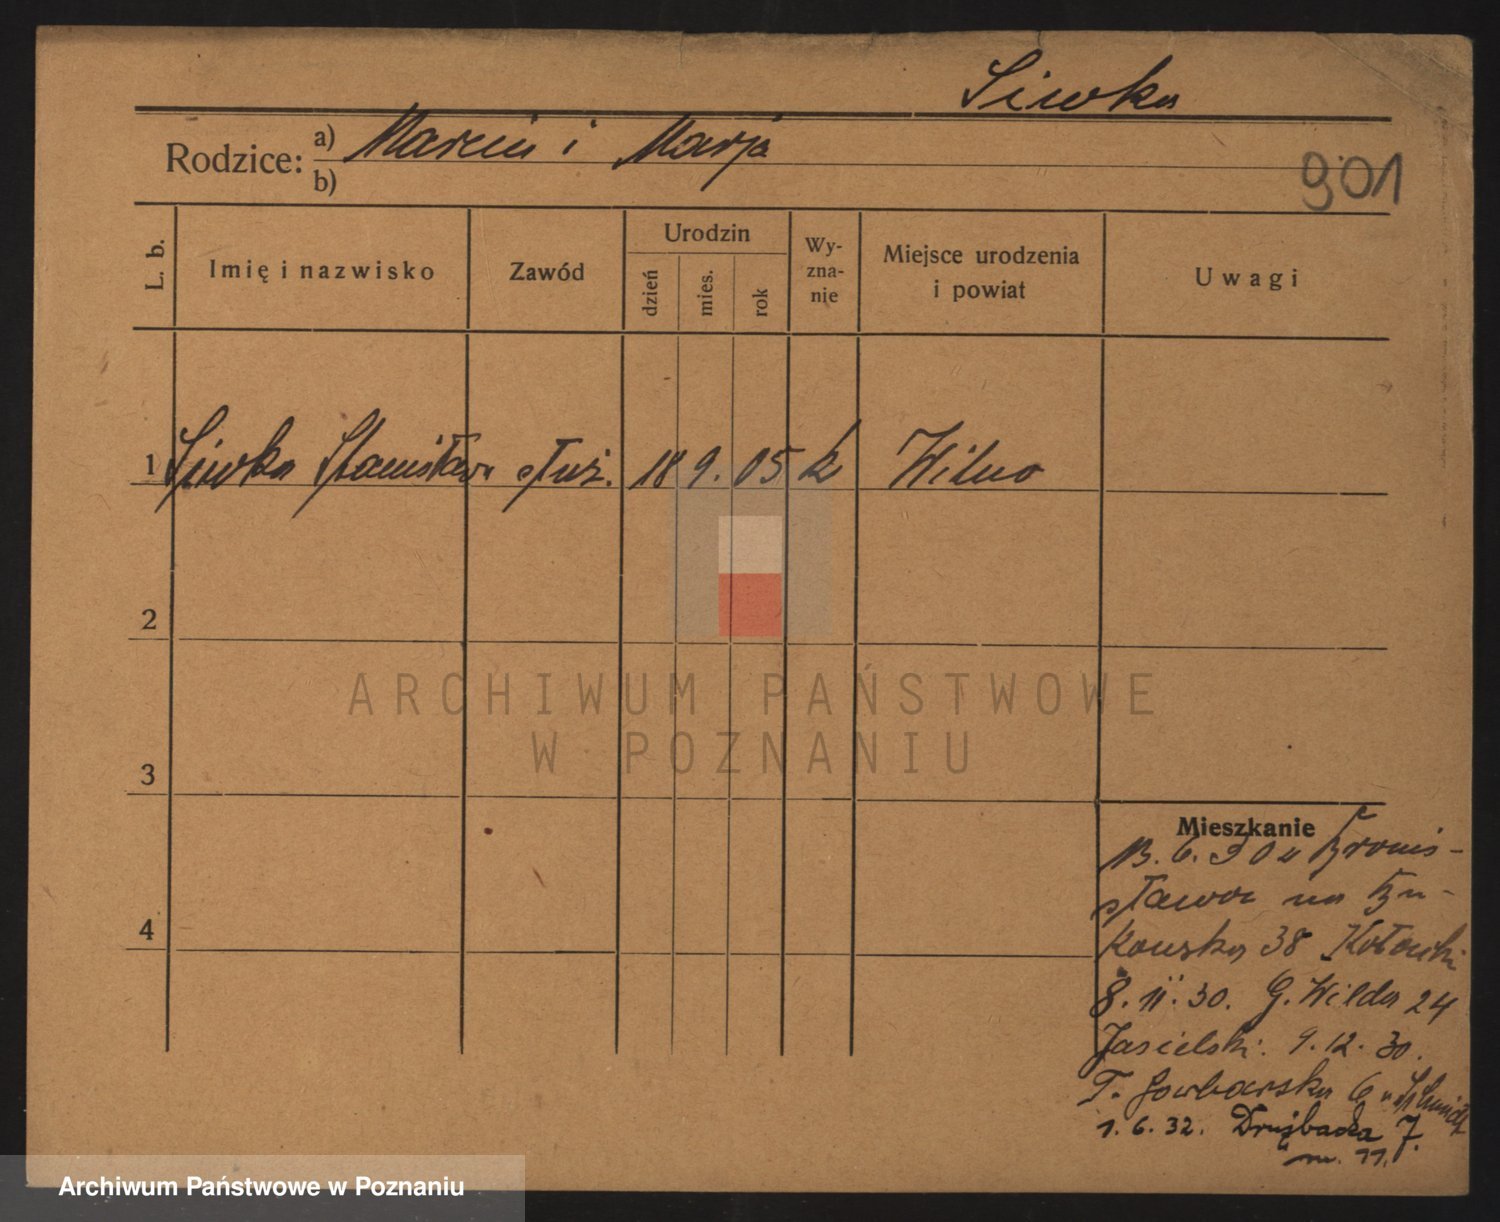 Siwka
Rodzice: a) Marcin i Marja
b)
901
L. b.
Imię i nazwisko
Zawód
Urodzin
dzień
mies.
rok
Wy-
zna-
nie
Miejsce urodzenia
i powiat
Uwagi
1 Siwka Stanisława służ. 18 9. 05 k Wilno
2
3
4
Mieszkanie
13. 6. 30 Bronis-
ława na Bu-
kowska 38
8. 11. 30. G. Wilda 24
Jasielski. 9. 12. 30.
6
1. 6. 32. Drużbacka 7.
m. 11.
ARCHIWUM PAŃSTWOWE
W POZNANIU
Archiwum Państwowe w Poznaniu